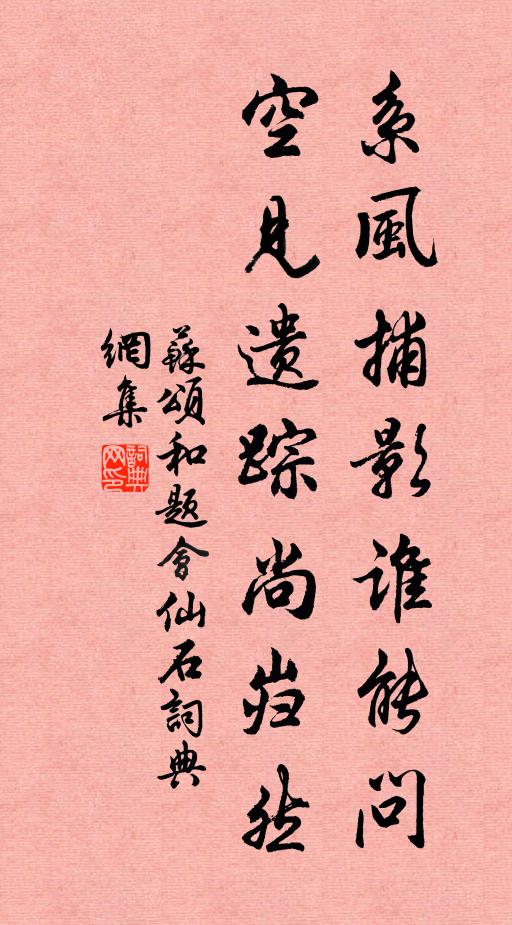 系風捕影誰能問
空見遺踪尚岿然
蘇頌和題會仙石詞典
網集
詞典网印